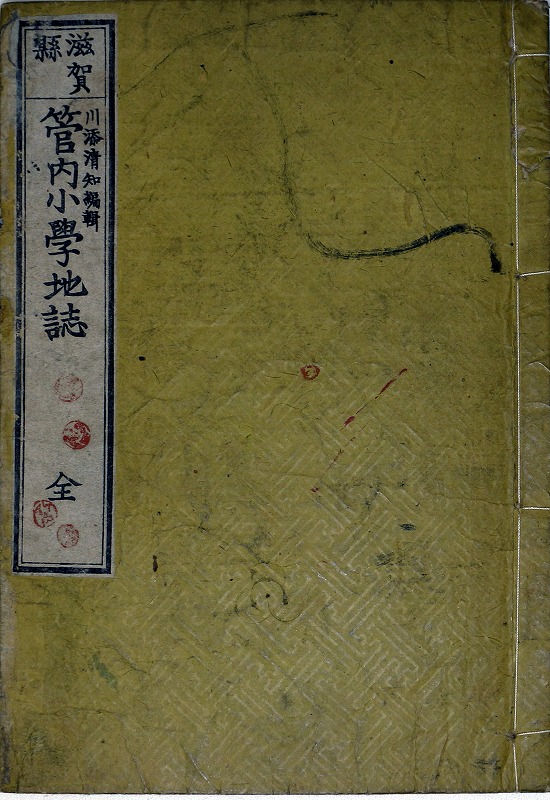 滋賀
縣
川添清知編輯
管内小學地誌
全